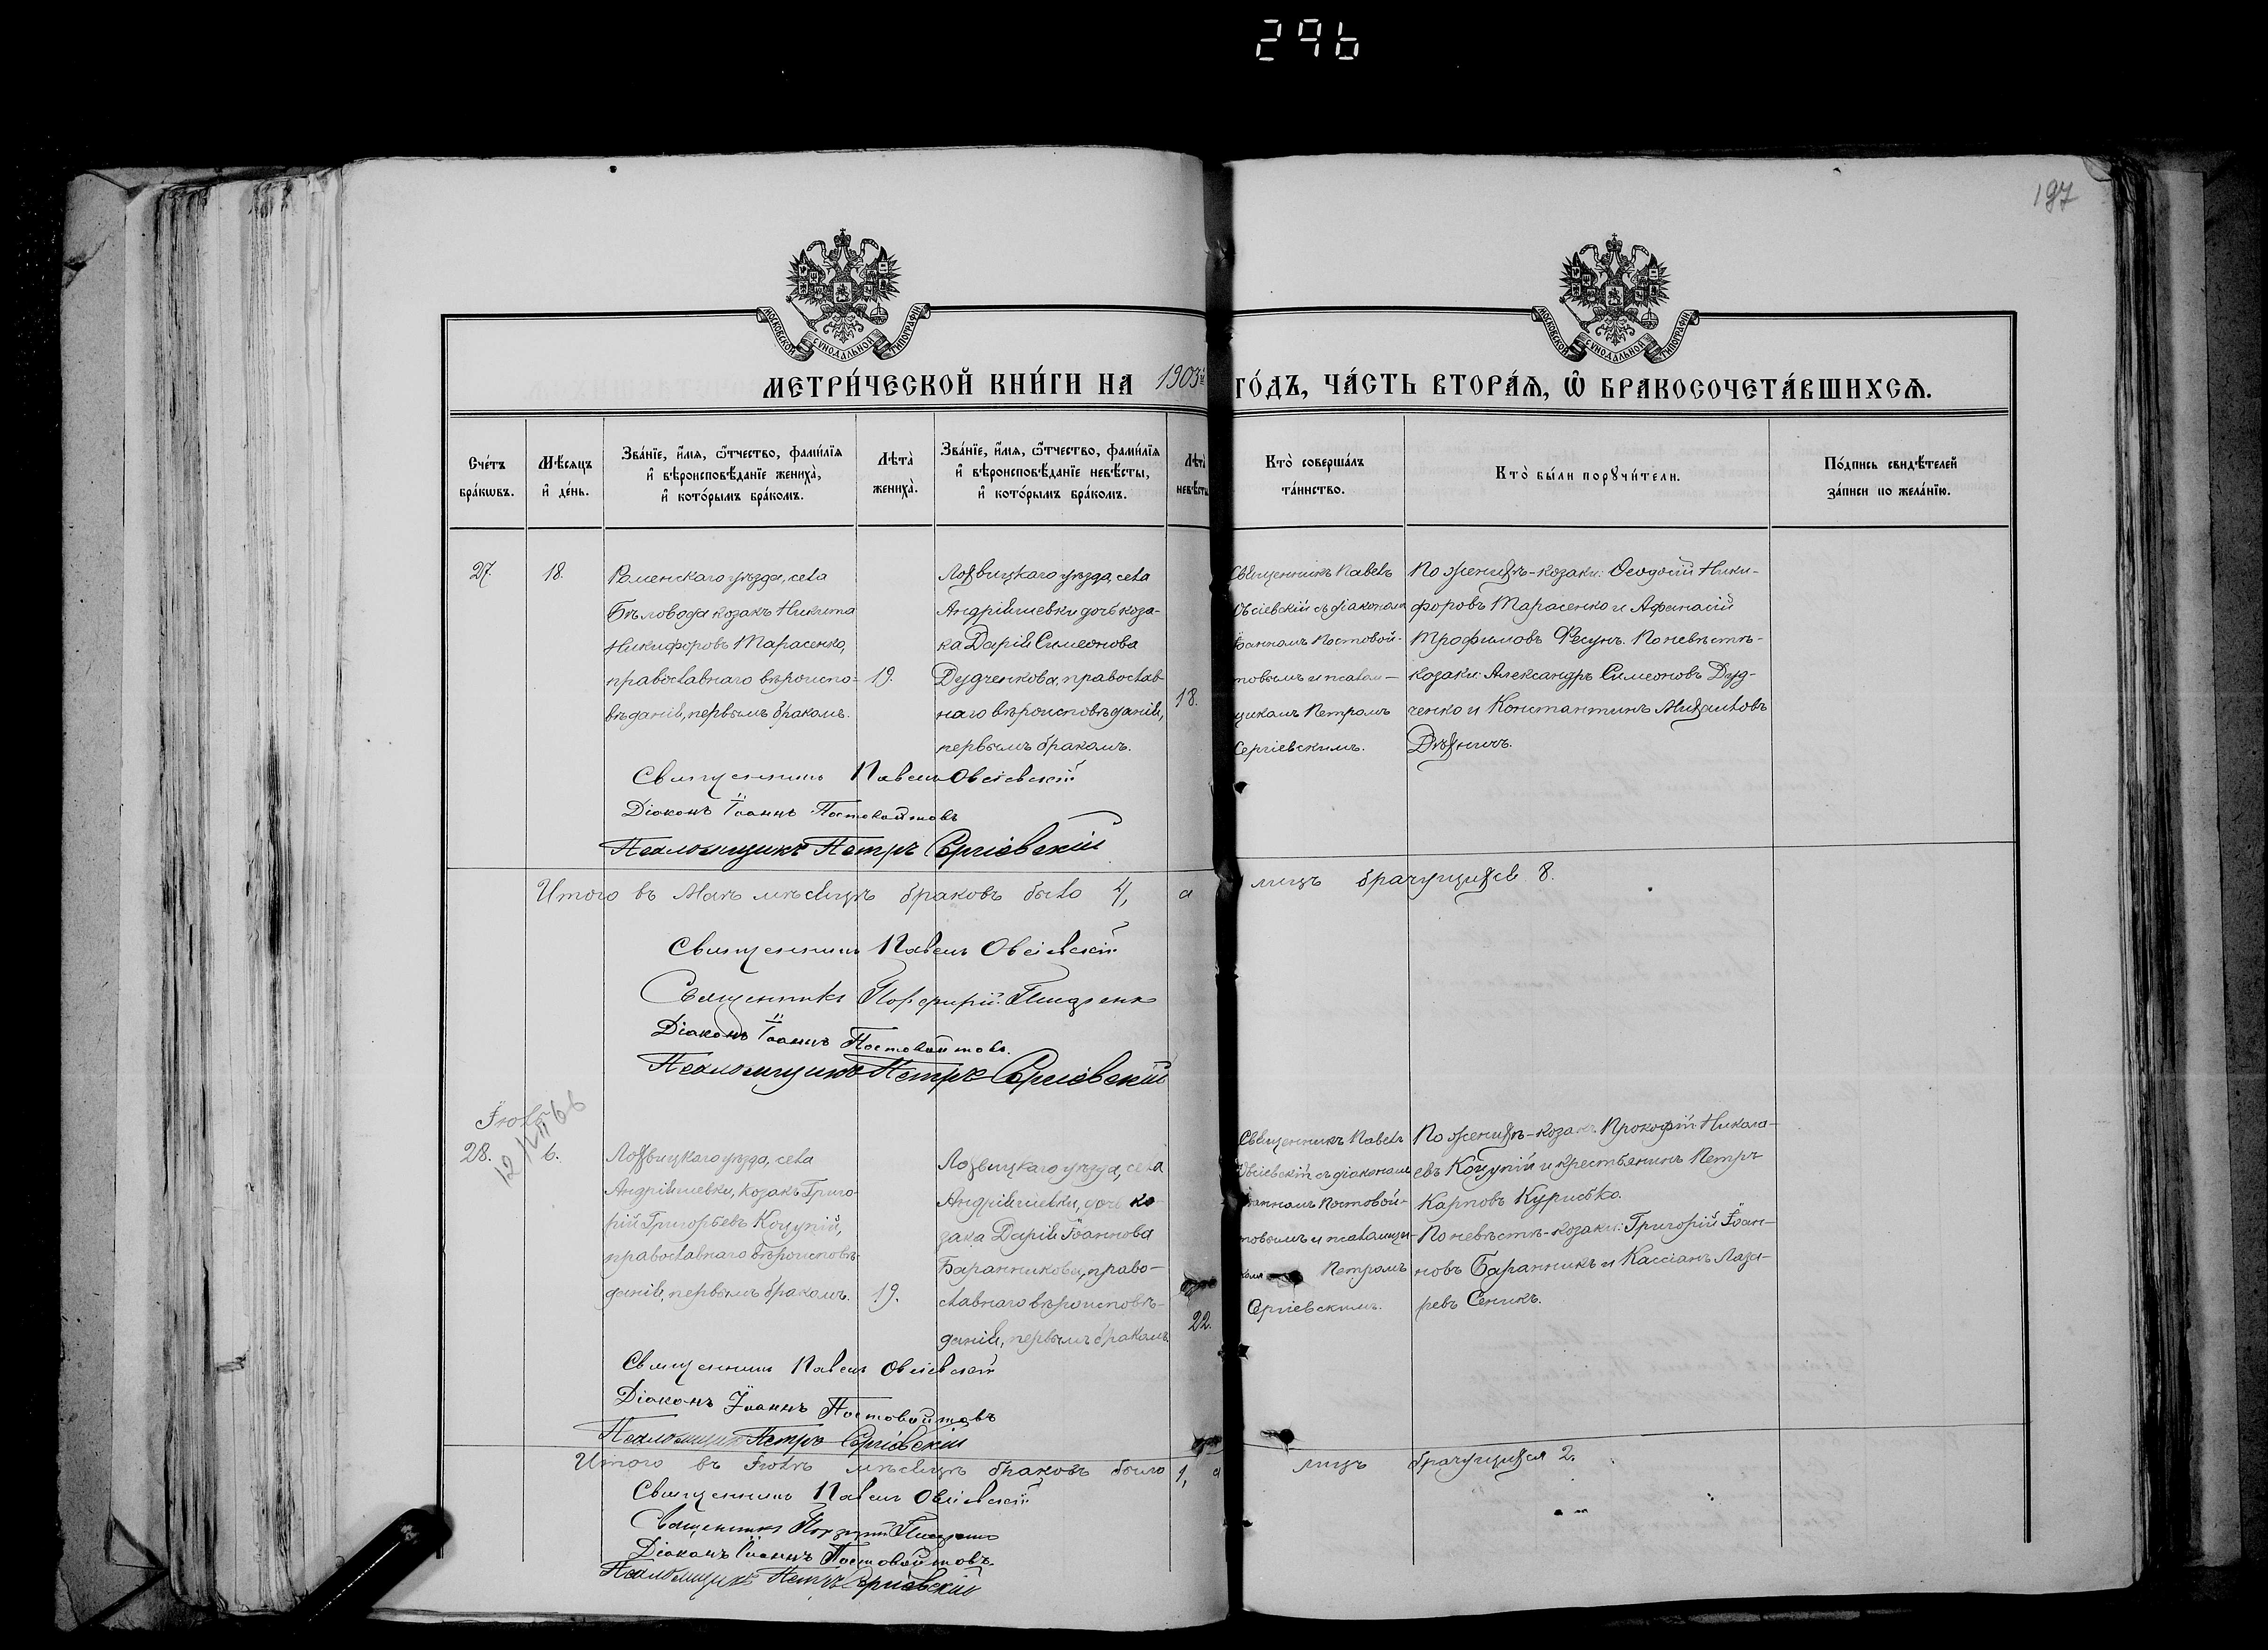 296
197
МОСКОВСКОЙ СУНОДАЛЬНОЙ ТИПОГРАФІИ
МОСКОВСКОЙ СУНОДАЛЬНОЙ ТИПОГРАФІИ
МЕТРИ́ЧЕСКОЙ КНИ́ГИ НА 1903й ГО́ДЪ, ЧА́СТЬ ВТОРА́Ѧ, Ѽ БРАКОСОЧЕТА́ВШИХСѦ.
Сче́тъ бра́кѡвъ.
Мѣ́сяцъ и҆ де́нь.
Зва́нїе, и҆́мѧ, ѻ҆́тчество, фами́лїѧ и҆ вѣроисповѣ́данїе жениха̀, и҆ кото́рымъ бра́комъ.
Лѣта̀ жениха̀.
Зва́нїе, и҆́мѧ, ѻ҆́тчество, фами́лїѧ и҆ вѣроисповѣ́данїе невѣ́сты, и҆ кото́рымъ бра́комъ.
Лѣта̀ невѣ́сты
Кто̀ соверша́лъ та́инство.
Кто̀ бы́ли порꙋчи́тели.
По́дпись свидѣ́телей за́писи по жела́нїю.
27.
18.
Роменскаго уѣзда, села
Бѣловода козакъ Никита
Никифоровъ Тарасенко,
православнаго вѣроиспо-
вѣданія, первымъ бракомъ.
19.
Лохвицкаго уѣзда, села
Андріяшевки дочь коза-
ка Дарія Симеонова
Дудченкова, православ
наго вѣроисповѣданія,
первымъ бракомъ.
18.
Священникъ Павелъ
Овсіевскій съ діакономъ
Іоанномъ Постовой-
товымъ и псалом-
щикомъ Петромъ
Сергіевскимъ.
По женихѣ - козаки: Ѳеодосій Ники-
форовъ Тарасенко и Афанасій
Трофимовъ Фесунъ. По невѣстѣ -
козаки: Александръ Симеоновъ Дуд-
ченко и Константинъ Михаиловъ
Дѣхничъ.
Священникъ Павелъ Овсіевскій
Діаконъ Іоаннъ Постовойтовъ
Псаломщикъ Петръ Сергіевскій
Итого въ Маѣ мѣсяцѣ браковъ было 4, а лицъ брачущихся 8.
Священникъ Павелъ Овсіевскій
Священникъ Порфирій
Діаконъ Іоаннъ Постовойтовъ.
Псаломщикъ Петръ Сергіевскій
Іюль
28.
6.
Лохвицкаго уѣзда, села
Андріяшевки, козакъ Григо-
рій Григорьевъ Коцупій,
православнаго вѣроисповѣ-
данія, первымъ бракомъ.
19.
Лохвицкаго уѣзда, села
Андріяшевки, дочь ко-
зака Дарія Іоаннова
Баранникова, право-
славнаго вѣроисповѣ-
данія, первымъ бракомъ.
22.
Священникъ Павелъ
Овсіевскій съ діакономъ
Іоанномъ Постовой-
товымъ и псаломщи-
комъ Петромъ
Сергіевскимъ.
По женихѣ - козакъ Прокофій Никола-
евъ Коцупій и крестьянинъ Петръ
Карповъ Курисько.
По невѣстѣ - козаки: Григорій Іоан-
новъ Баранникъ и Кассіанъ Лаза-
ревъ Сеникъ.
Священникъ Павелъ Овсіевскій
Діаконъ Іоаннъ Постовойтовъ
Псаломщикъ Петръ Сергіевскій
Итого въ Іюлѣ мѣсяцѣ браковъ было 1, а лицъ брачущихся 2.
Священникъ Павелъ Овсіевскій
Священникъ Порфирій
Діаконъ Іоаннъ Постовойтовъ.
Псаломщикъ Петръ Сергіевскій